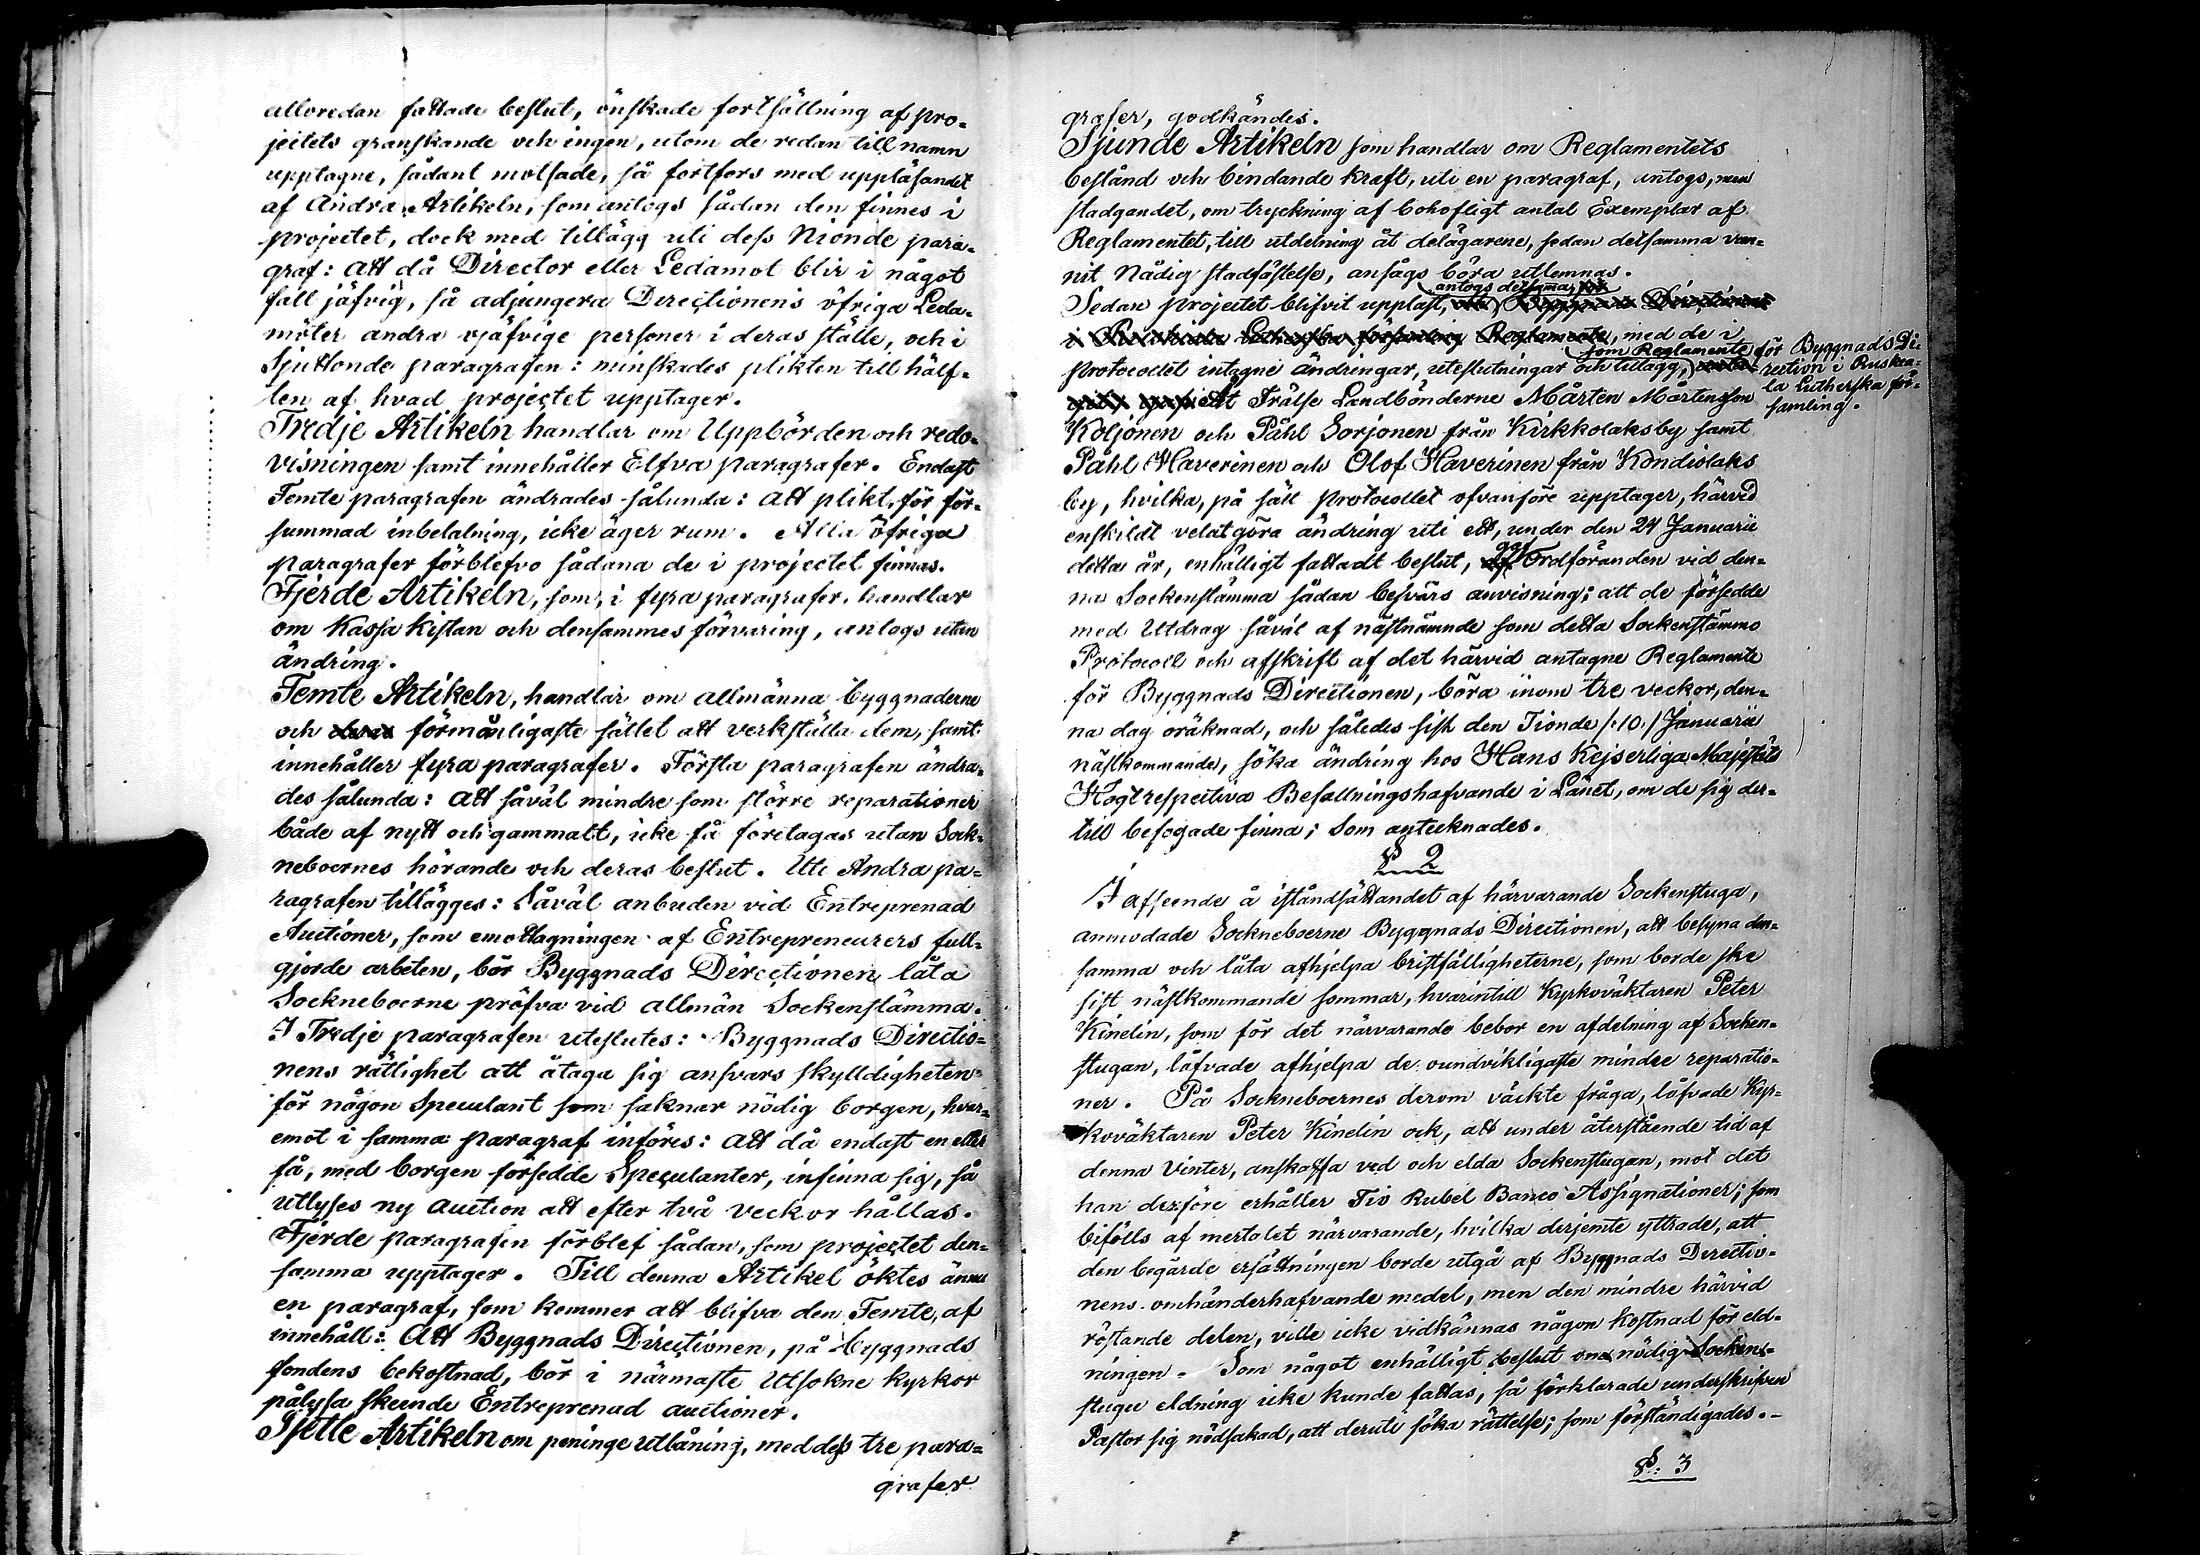 alloredan fattade beslut, önskade fortsättning af pro-
jectets granskande och ingen, utom de redan till namn
upptagne, sådant motsade, så fortfors med uppläsandet
af Andra Artikeln, som antogs sådan den finnes i
projectet, dock med tillägg uti dess Nionde para-
graf: att då Director eller Ledamot blir i något
fall jäfvig, så adjungera Directionens öfriga Leda-
möter andra ojäfvige personer i deras ställe, och i
Sjuttonde paragrafen: minskades plikten till hälf-
ten af hvad projectet upptager.
Tredje Artikeln handlar om Uppbörden och redo-
visningen samt innehåller Elfva paragrafer. Endast
Femte paragrafen ändrades sålunda: att plikt, för för-
summad inbetalning, icke äger rum. Alla öfriga
paragrafer förblefvo sådana de i projectet finnas.
Fjerde Artikeln, som, i fyra paragrafer, handlar
om Kassa Kistan och densammes förvaring, antogs utan
ändring.
Femte Artikeln, handlar om allmänna byggnaderne
och förmånligaste sättet att verkställa dem, samt
innehåller fyra paragrafer. Första paragrafen ändra-
des sålunda: att såväl mindre som större reparationer
både af nytt och gammalt, icke få företagas utan Sock-
neboernes hörande och deras beslut. Uti Andra pa-
ragrafen tillägges: Såväl anbuden vid Entreprenad
Auctioner, som emottagningen af Entrepreneurers full-
gjorde arbeten, bör Byggnads Directionen låta
Sockneboerne pröfva vid allmän Sockenstämma.
I Tredje paragrafen uteslutes: Byggnads Directio-
nens rättighet att åtaga sig ansvars skylldigheten
för någon Speculant som saknar nödig borgen, hvar-
emot i samma paragraf införes: att då endast en eller
få, med borgen försedde Speculanter, infinna sig, så
utlyses ny auction att efter två veckor hållas.
Fjerde paragrafen förblef sådan, som projectet den-
samma upptager. Till denna Artikel öktes ännu
en paragraf, som kommer att blifva den Femte, af
innehåll: Att Byggnads Directionen, på byggnads
fondens bekostnad, bör i närmaste Utsokne kyrkor
pålysa skeende Entreprenad auctioner.
Sjette Artikeln om peninge utlåning, med dess tre para-
grafer
grafer, godkändes.
Sjunde Artikeln som handlar om Reglamentets
bestånd och bindande kraft, uti en paragraf, antogs, men
stadgandet, om tryckning af behofligt antal Exemplar af
Reglamentet, till utdelning åt delägarene, sedan detsamma vun-
nit Nådig stadfästelse, ansågs böra utlemnas.
antogs detsamma,
Sedan projectet blifvit uppläst,
med de i
som Reglamente för Byggnads Di-
protocollet intagne ändringar, uteslutningar och tillägg, rection i Ruskea-
la Lutherska för-
At Frälse Landbönderne Mårten Mårtensson samling.
Koljonen och Påhl Sorjonen från Kirkkolaksby samt
Påhl Haverinen och Olof Haverinen från Kondiolaks
by, hvilka, på sätt protocollet ofvanföre upptager, härvid
enskildt velat göra ändring uti ett, under den 24 Januarii
detta år, enhälligt fattadt beslut, gaf Ordföranden vid den-
na Sockenstämma sådan besvärs anvisning: att de försedde
med Utdrag såväl af nästnämnde som detta Sockenstämmo
Protocoll och afskrift af det härvid antagne Reglamente
för Byggnads Directionen, böra inom tre veckor, den-
na dag oräknad, och således sist den Tionde /:10:/ Januarii
nästkommande, söka ändring hos Hans Kejserliga Majestäts
Högtrespectiva Befallningshafvande i Länet, om de sig der-
till befogade finna; Som antecknades.
§ 2
I afseende å iståndsättandet af härvarande Sockenstuga,
anmodade Sockneboerne Byggnads Directionen, att besyna den-
samma och låta afhjelpa bristfälligheterne, som borde ske
sist nästkommande sommar, hvarintill Kyrkoväktaren Peter
Kinelin, som för det närvarande bebor en afdelning af Socken-
stugan, låfvade afhjelpa de oundvikligaste mindre reparatio-
ner. På Sockneboernes derom väckte fråga, låfvade Kyr-
koväktaren Peter Kinelin ock, att under återstående tid af
denna Vinter, anskaffa ved och elda Sockenstugan, mot det
han derföre erhåller Tio Rubel Banco Assignationer; som
bifölls af mertalet närvarande, hvilka derjemte yttrade, att
den begärde ersättningen borde utgå af Byggnads Directio-
nens omhänderhafvande medel, men den mindre härvid
röstande delen, ville icke vidkännas någon Kostnad för eld-
ningen. Som något enhälligt beslut om nödig Socken-
stugu eldning icke kunde fattas, så förklarade underskrifven
Pastor sig nödsakad, att deruti söka rättelse; som förständigades.-
§: 3